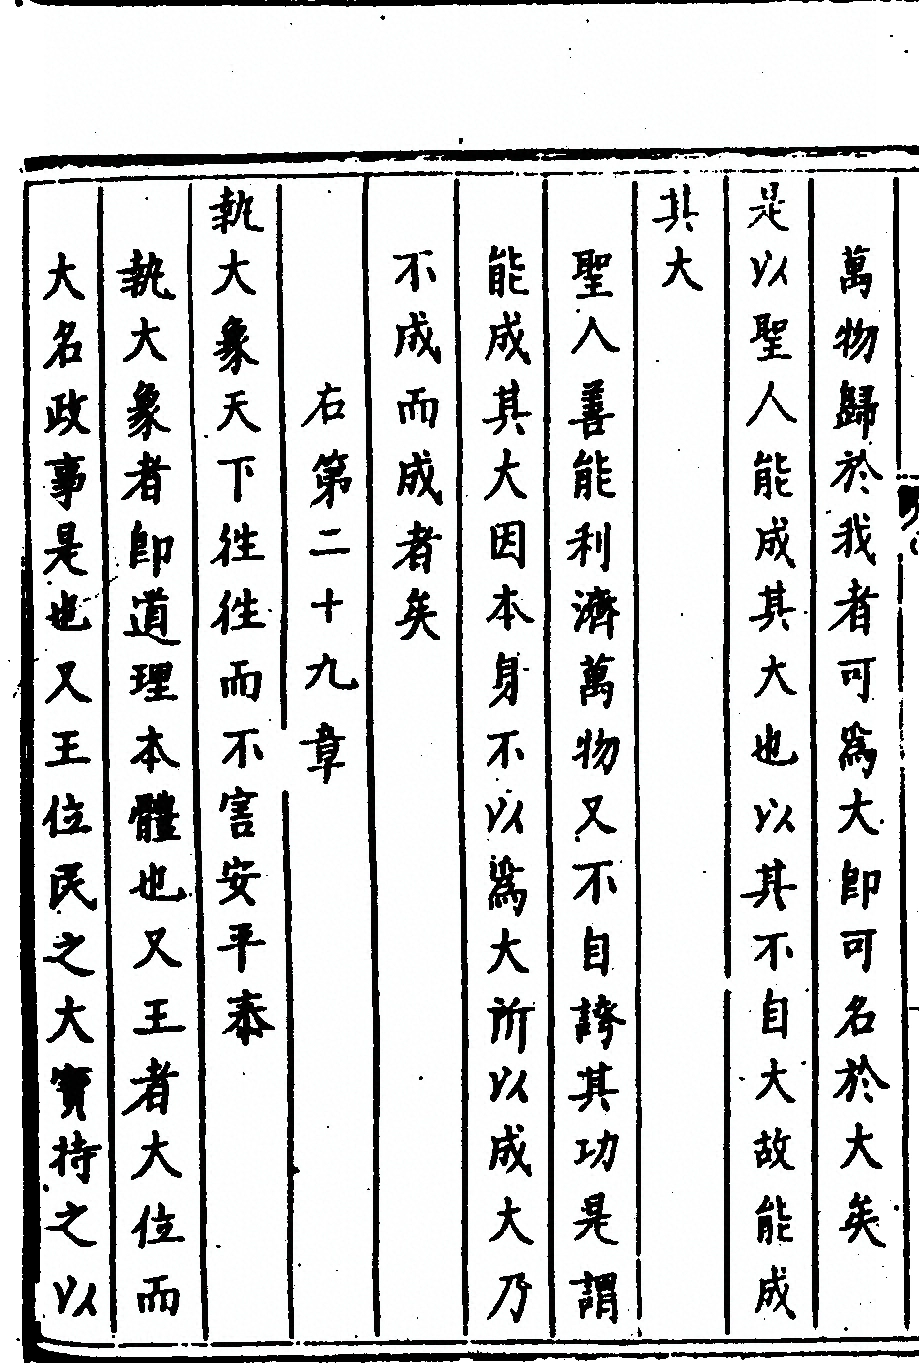 萬物歸於我者可爲大卽可名於大矣
是以聖人能成其大也以其不自大故能成
其大
聖人善能利濟萬物又不自誇其功是謂
能成其大因本身不以爲大所以成大乃
不成而成者矣
右第二十九章
執大象天下徃徃而不害安平泰
執大象者卽道理本體也又王者大位而
大名政事是也又王位民之大寶持之以